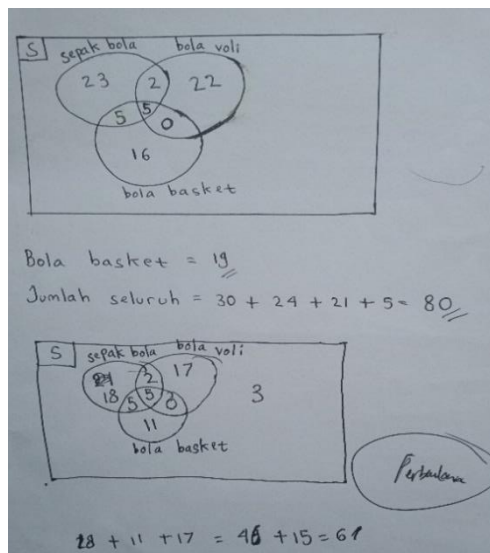 S
sepak bola bola voli
23 2 22
5 5 0
16
bola basket
Bola basket = 19
Jumlah seluruh = 30 + 24 + 21 + 5 = 80
S
sepak bola bola voli
2 17
18 5 5 0 3
11
bola basket
28 + 11 + 17 = 46 + 15 = 61